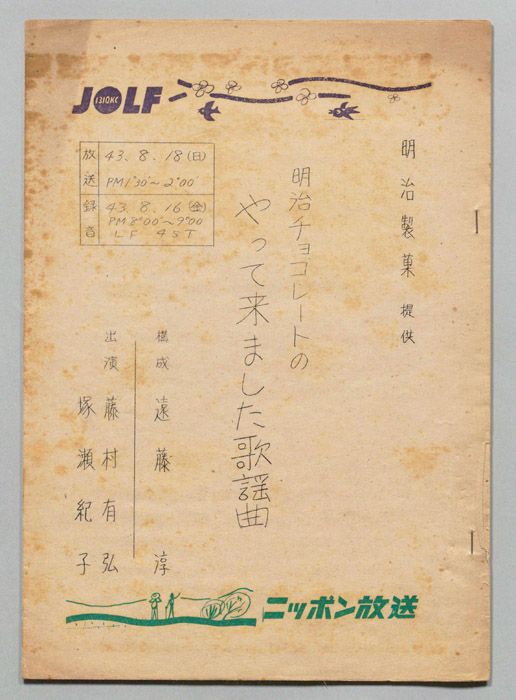 JOLF
1310KC
放送 43.8.18(日)
PM1°30'~2°00'
録音 43.8.16(金)
PM8°00'~9°00'
LF 4ST
明治製菓 提供
明治チョコレートの
やって来ました歌謡曲
構成 遠藤 淳
出演 藤村有弘
塚瀬紀子
ニッポン放送